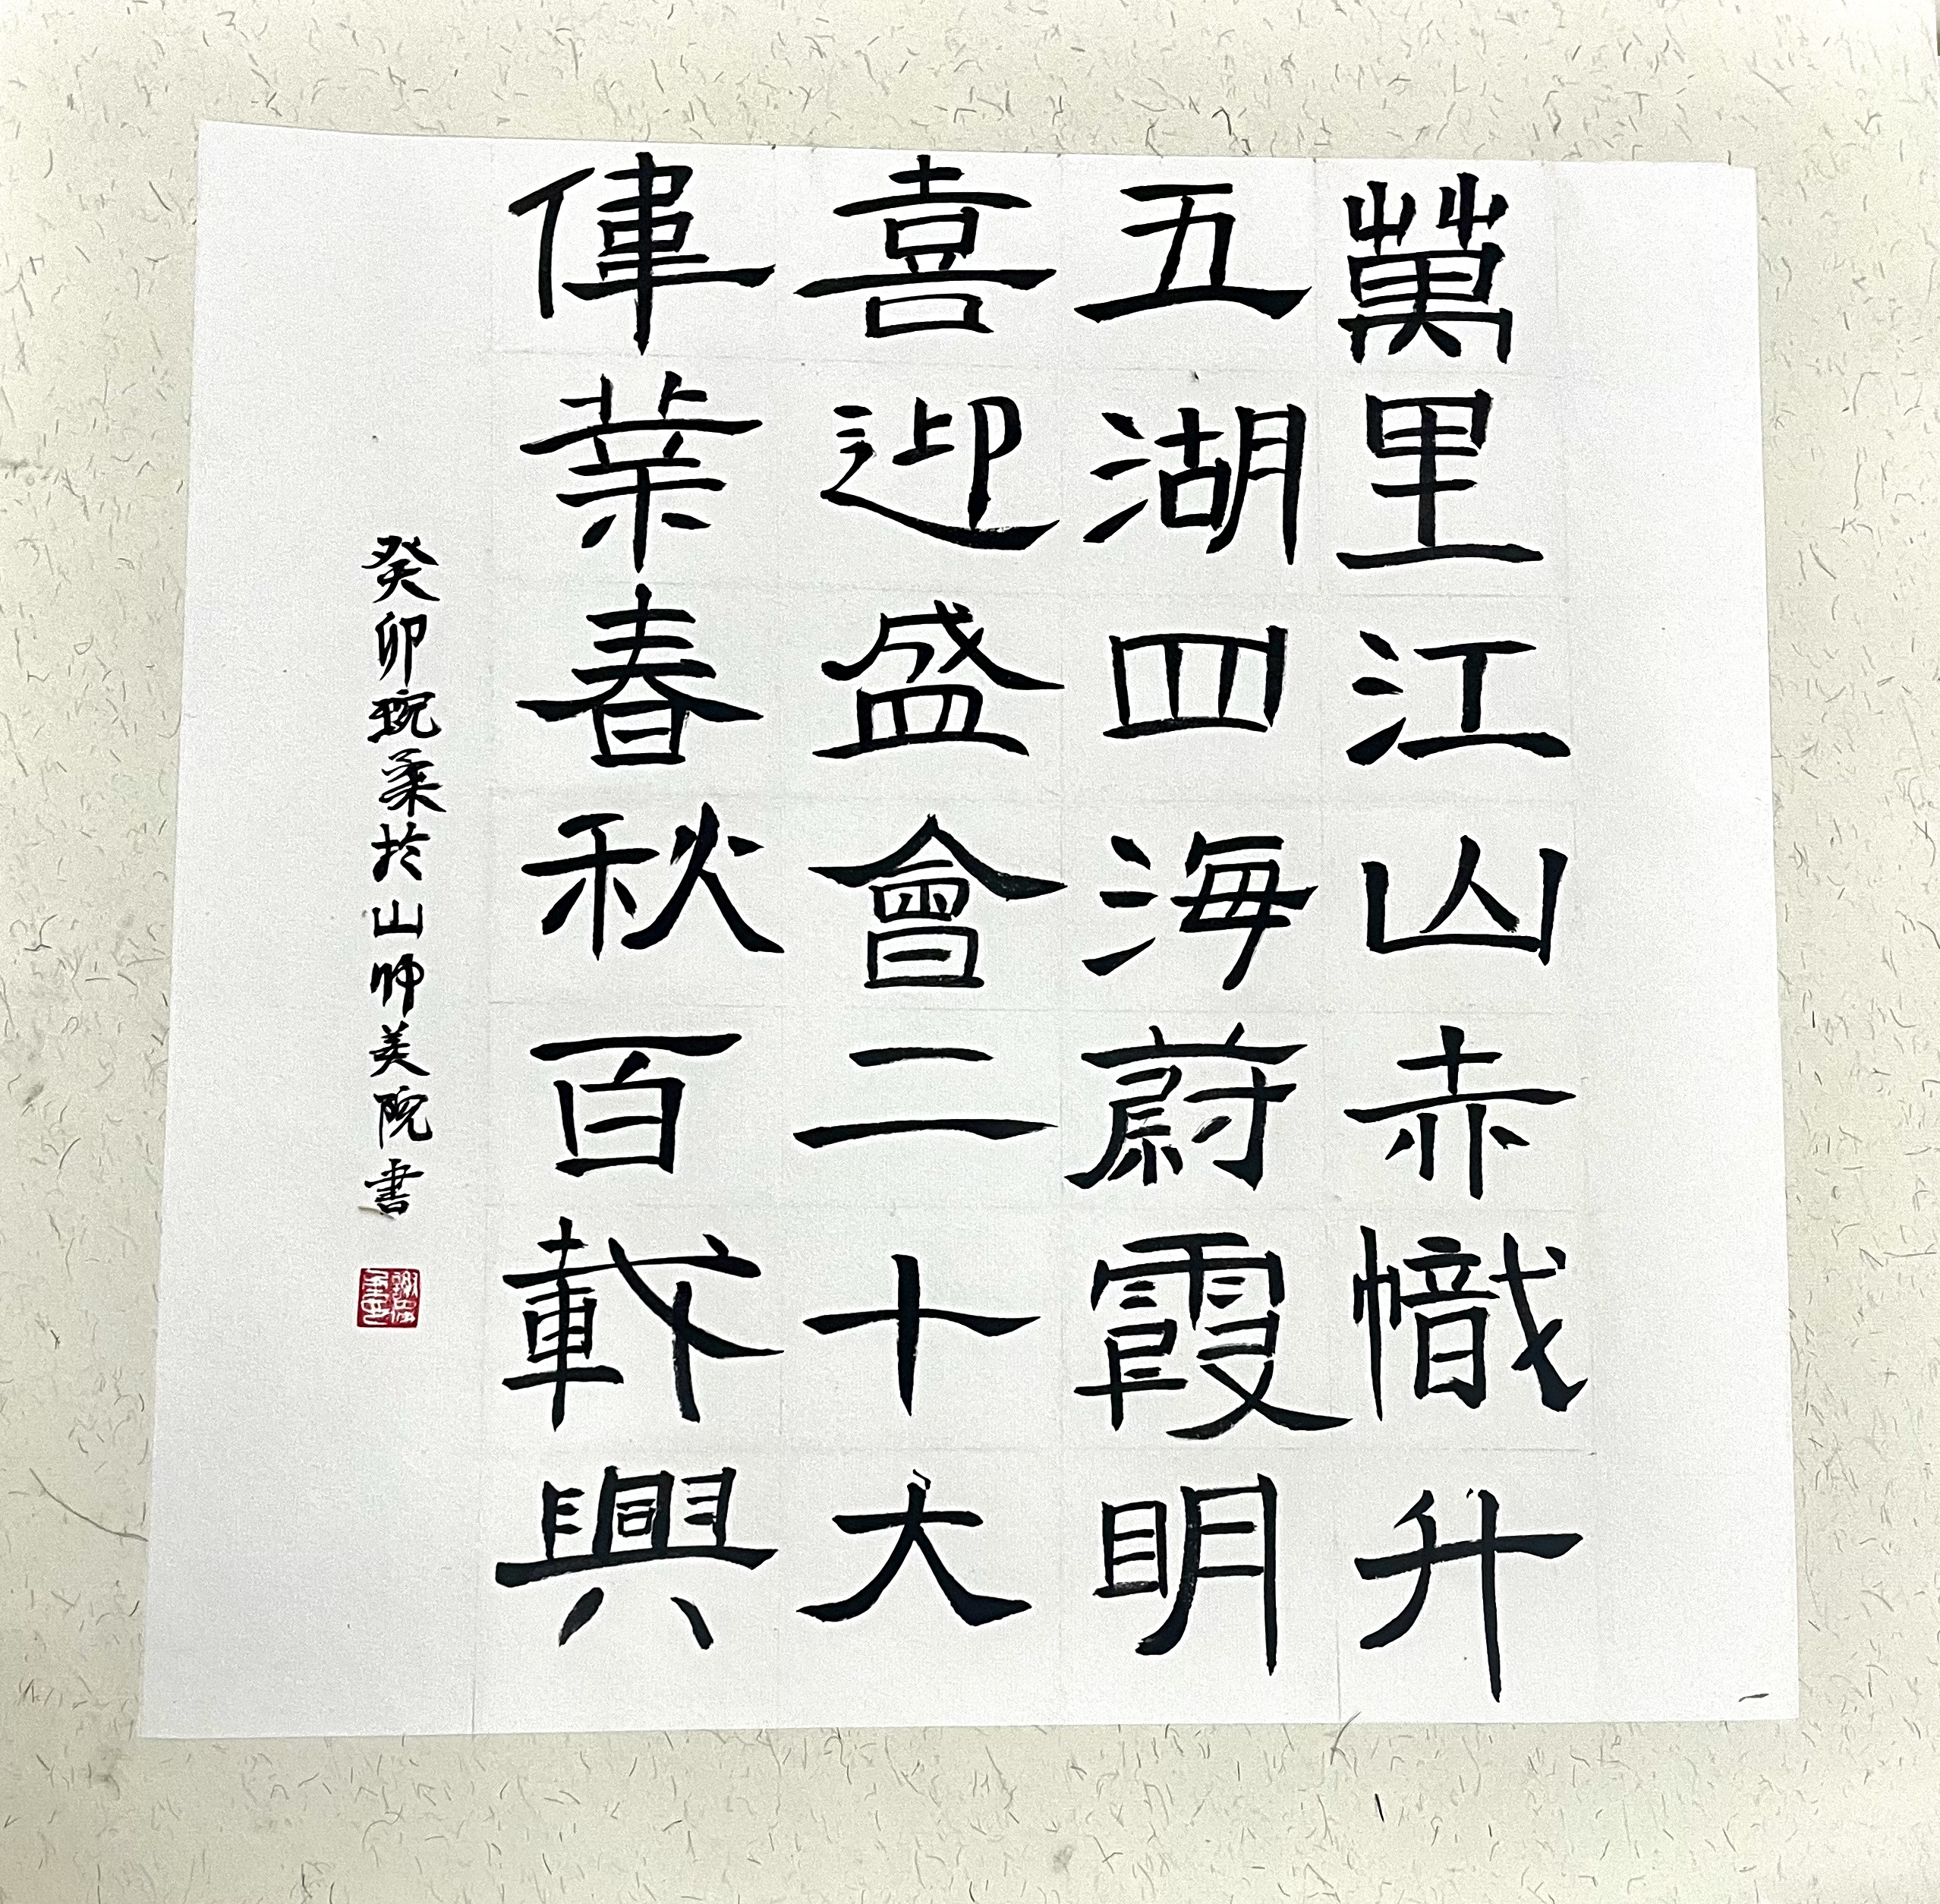 萬里江山赤幟升
五湖四海蔚霞明
喜迎盛會二十大
偉業春秋百載興
癸卯琬柔於山师美院書